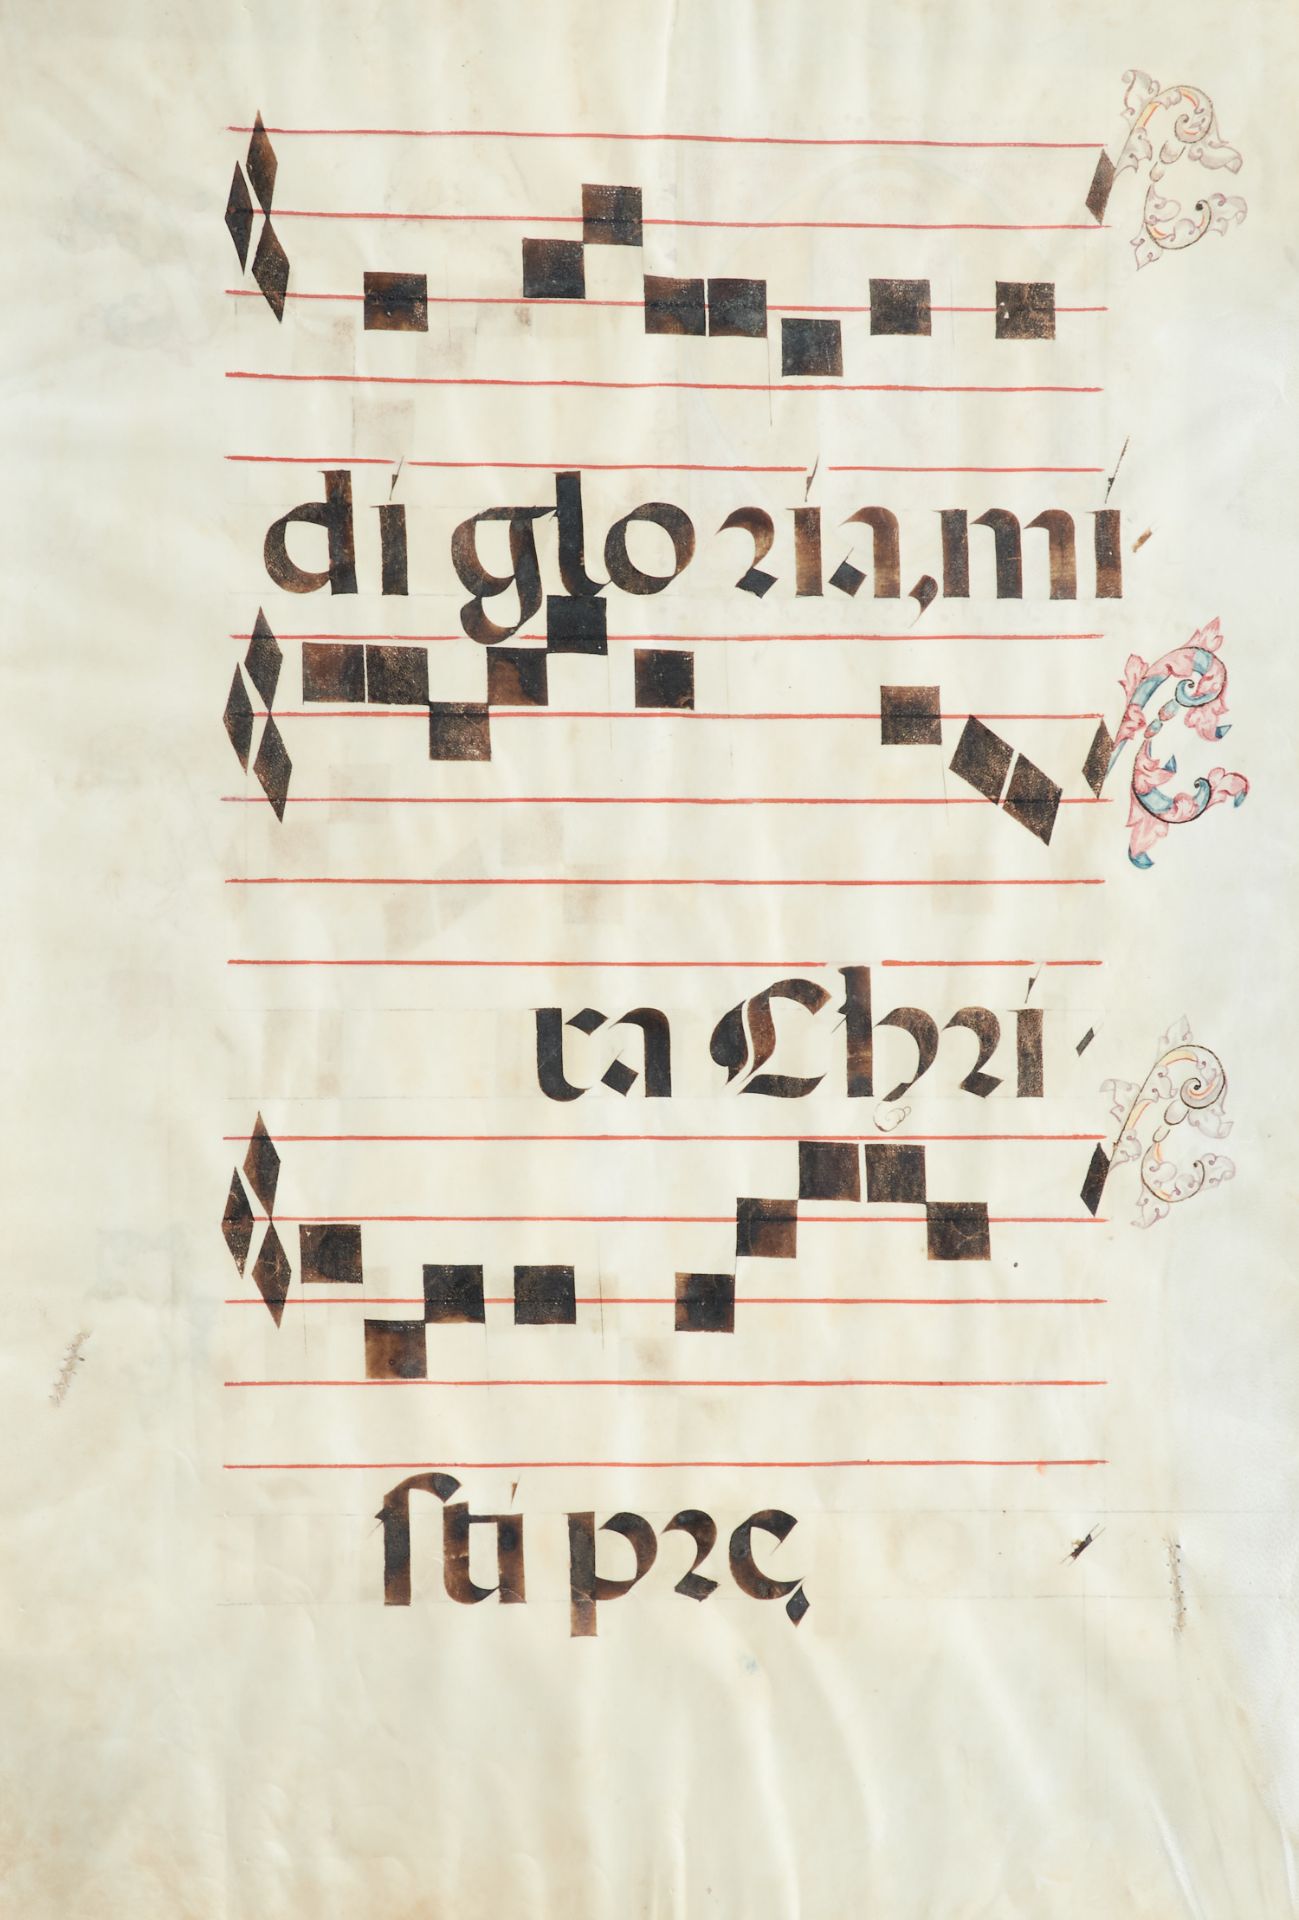 di gloria, mi-
ra Chri-
sti prę-